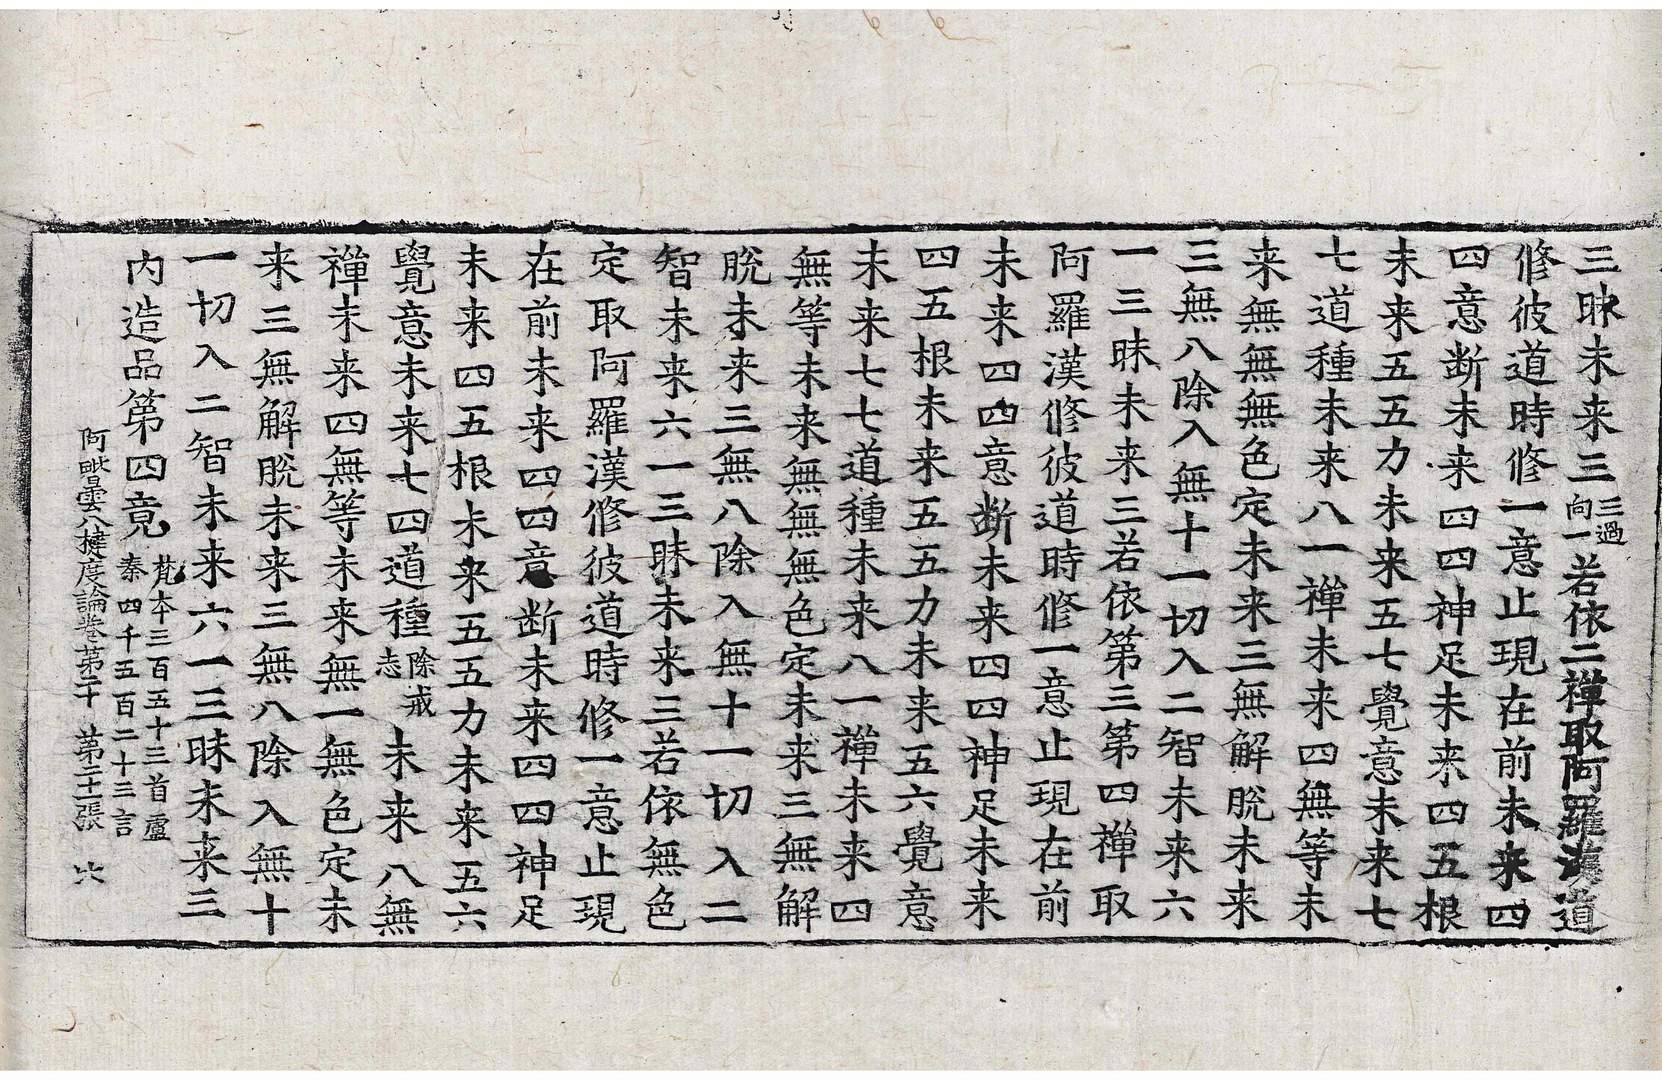 三昧未来三三過向一若依二禪取阿羅漢道
修彼道時修一意止現在前未来四
四意断未来四四神足未来四五根
未来五五力未来五七覺意未来七
七道種未来八一禪未来四無等未
来無無無色定未来三無解脫未来
三無八除入無十一切入二智未来六
一三昧未来三若依第三第四禪取
阿羅漢修彼道時修一意止現在前
未来四四意断未来四四神足未来
四五根未来五五力未来五六覺意
未来七七道種未来八一禪未来四
無等未来無無無色定未来三無解
脫未来三無八除入無十一切入二
智未来六一三昧未来三若依無色
定取阿羅漢修彼道時修一意止現
在前未来四四意断未来四四神足
未来四五根未来五五力未来五六
覺意未来七四道種除戒志未来八無
禪未来四無等未来無一無色定未
来三無解脫未来三無八除入無十
一切入二智未来六一三昧未来三
内造品第四竟梵本三百五十三首盧秦四千五百二十三言
阿毗曇八揵度論卷第二十 第二十一張